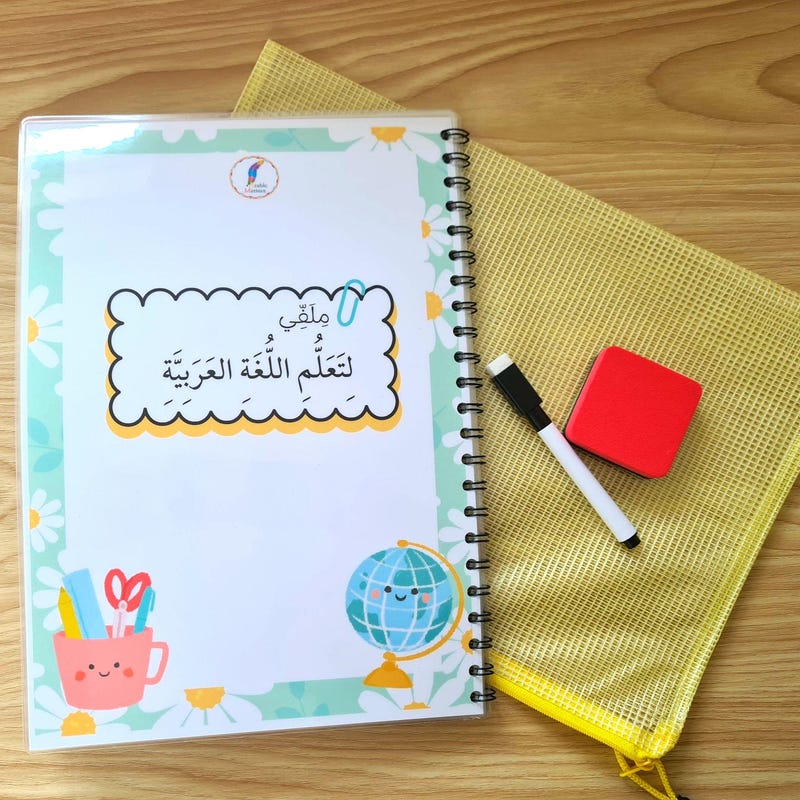 مِلَفِّي
لِتَعَلُّمِ اللُّغَةِ العَرَبِيَّةِ